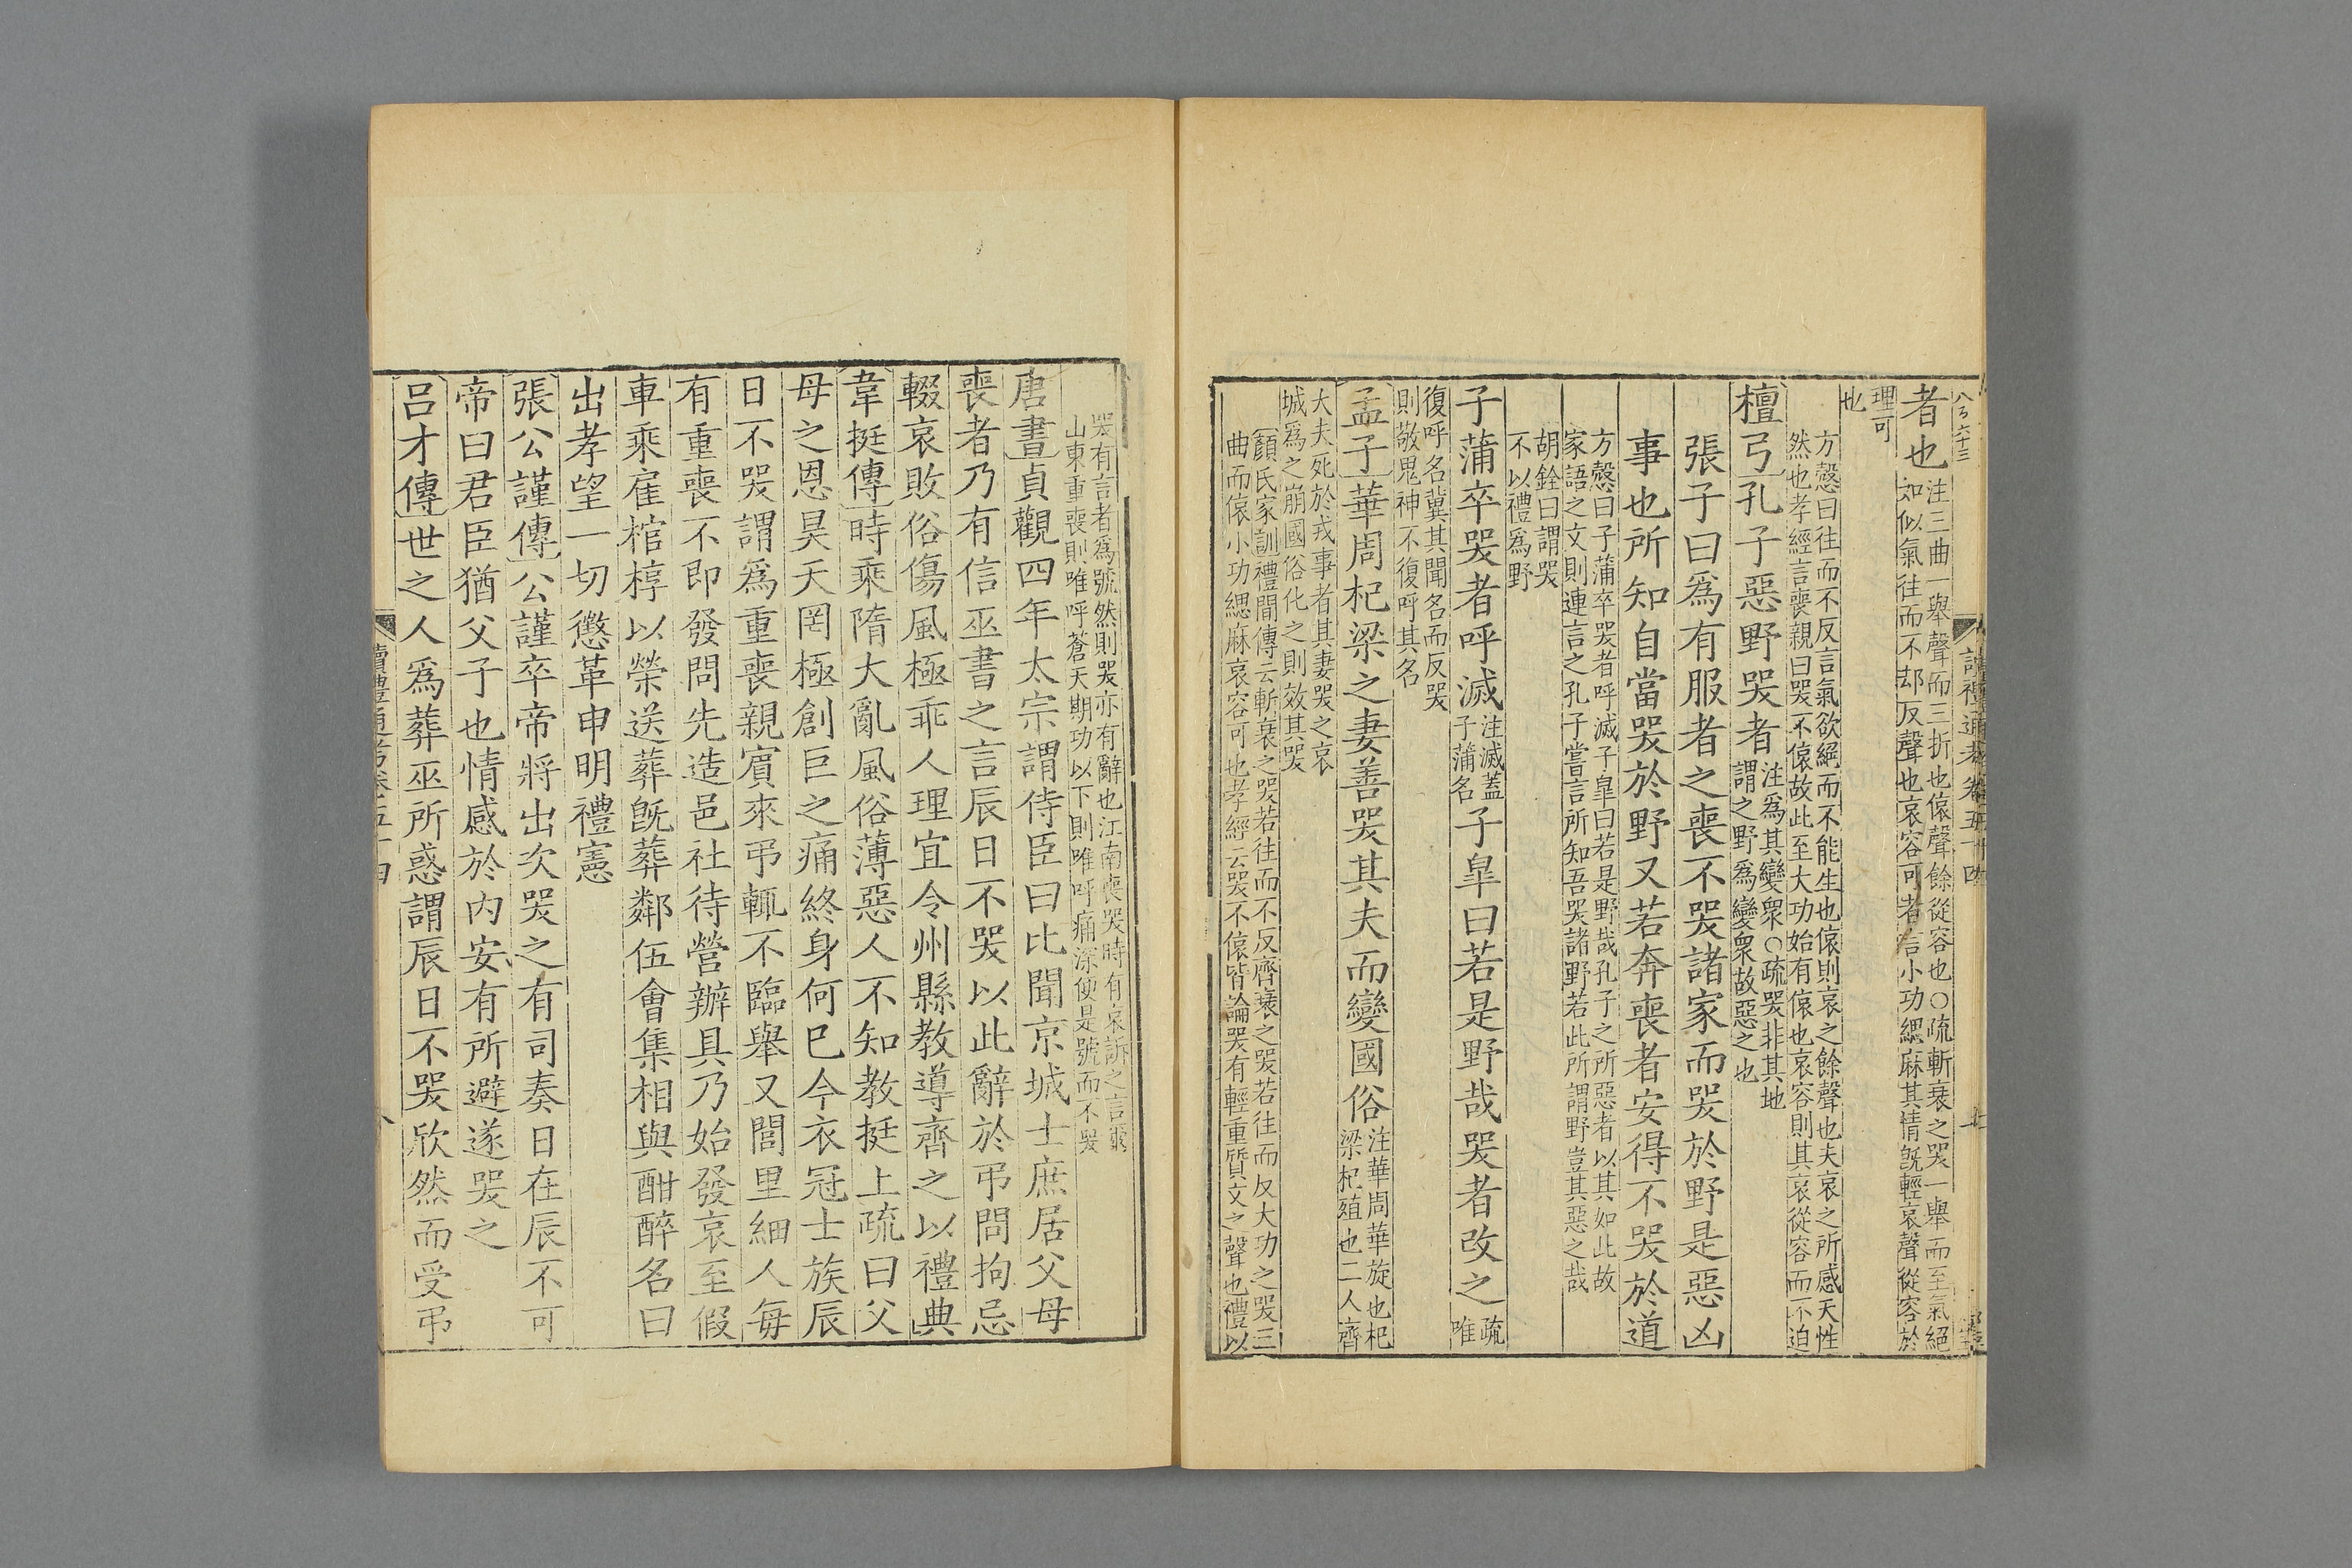 讀禮通考卷五十四
者也注三曲一舉聲而三折也偯聲餘從容也○疏斬衰之哭一舉而至氣絕
如似氣往而不却反聲也哀容可者言小功緦麻其情旣輕哀聲從容於
理可
也
方慤曰往而不反言氣欲絕而不能生也偯則哀之餘聲也夫哀之所感天性
然也孝經言喪親曰哭不偯故此至大功始有偯也哀容則其哀從容而不迫
檀弓孔子惡野哭者注爲其變衆○疏哭非其地
謂之野爲變衆故惡之也
張子曰爲有服者之喪不哭諸家而哭於野是惡凶
事也所知自當哭於野又若奔喪者安得不哭於道
方慤曰子蒲卒哭者呼滅子臯曰若是野哉孔子之所惡者以其如此故
家語之文則連言之孔子嘗言所知吾哭諸野若此所謂野豈其惡之哉
胡銓曰謂哭
不以禮爲野
子蒲卒哭者呼滅注滅蓋
子蒲名
子臯曰若是野哉哭者改之疏
唯
復呼名冀其聞名而反哭
則敬鬼神不復呼其名
孟子華周杞梁之妻善哭其夫而變國俗注華周華旋也杞
梁杞殖也二人齊
大夫死於戎事者其妻哭之哀
城爲之崩國俗化之則效其哭
顏氏家訓禮閒傳云斬衰之哭若往而不反齊衰之哭若往而反大功之哭三
曲而偯小功緦麻哀容可也孝經云哭不偯皆論哭有輕重質文之聲也禮以
哭有言者爲號然則哭亦有辭也江南喪哭時有哀訴之言耳
山東重喪則唯呼蒼天期功以下則唯呼痛深便是號而不哭
唐書貞觀四年太宗謂侍臣曰比聞京城士庶居父母
喪者乃有信巫書之言辰日不哭以此辭於弔問拘忌
輟哀敗俗傷風極乖人理宜令州縣教導齊之以禮典
韋挺傳時乘隋大亂風俗薄惡人不知教挺上疏曰父
母之恩昊天罔極創巨之痛終身何巳今衣冠士族辰
日不哭謂爲重喪親賓來弔輒不臨舉又閭里細人每
有重喪不即發問先造邑社待營辦具乃始發哀至假
車乘雇棺椁以榮送葬旣葬鄰伍會集相與酣醉名曰
出孝望一切懲革申明禮憲
張公謹傳公謹卒帝將出次哭之有司奏日在辰不可
帝曰君臣猶父子也情感於內安有所避遂哭之
呂才傳世之人爲葬巫所惑謂辰日不哭欣然而受弔
讀禮通考卷五十四
八